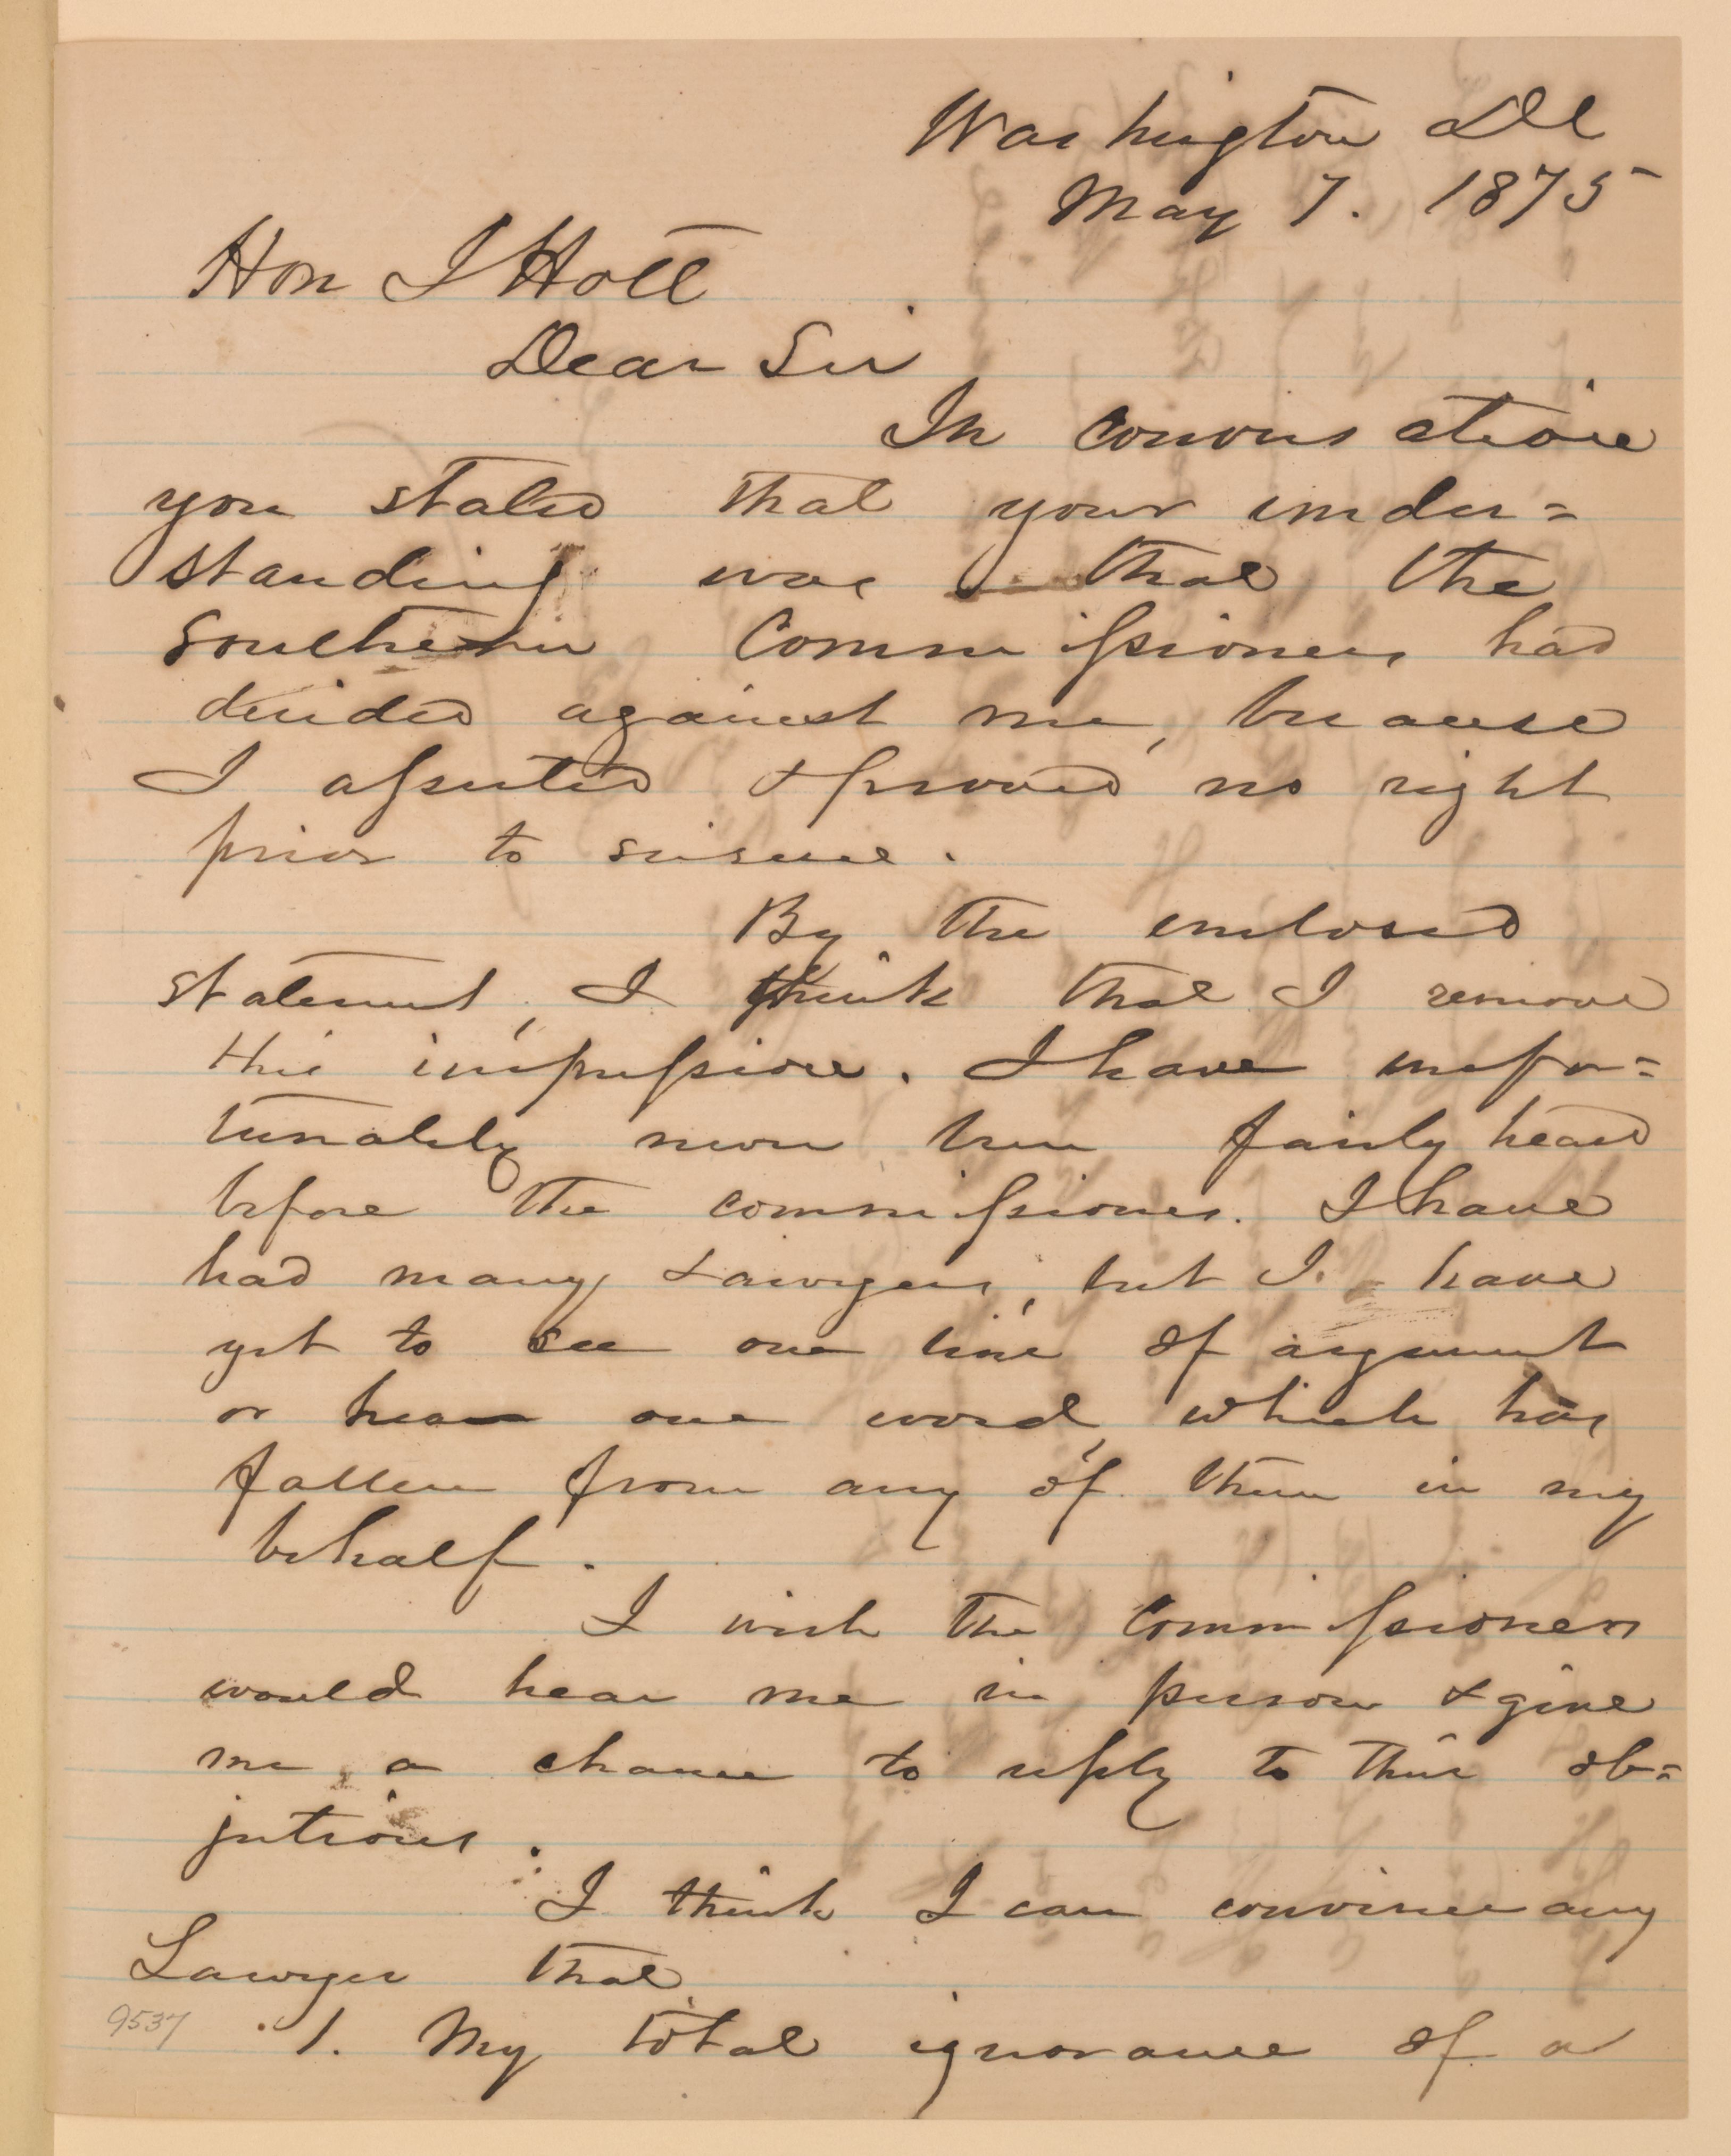 Washington DC
May 7. 1875
Hon J Holt
Dear Sir
In conversation
you stated that your under=
standing was that the
Southern Commissioners had
decided against me, because
I asserted & proved no right
prior to seisure.
By the enclosed
statement, I think that I remove
this impression. I have unfor=
tunately never been fairly heard
before the commissioners. I have
had many Lawyers, but I have
yet to see one line of argument
or hear one word, which has
fallen from any of them in my
behalf.
I wish the Commissioners
would hear me in person & give
me a chance to reply to their ob=
jections.
I think I can convince any
Lawyer that
1. My total ignorance of a
9537